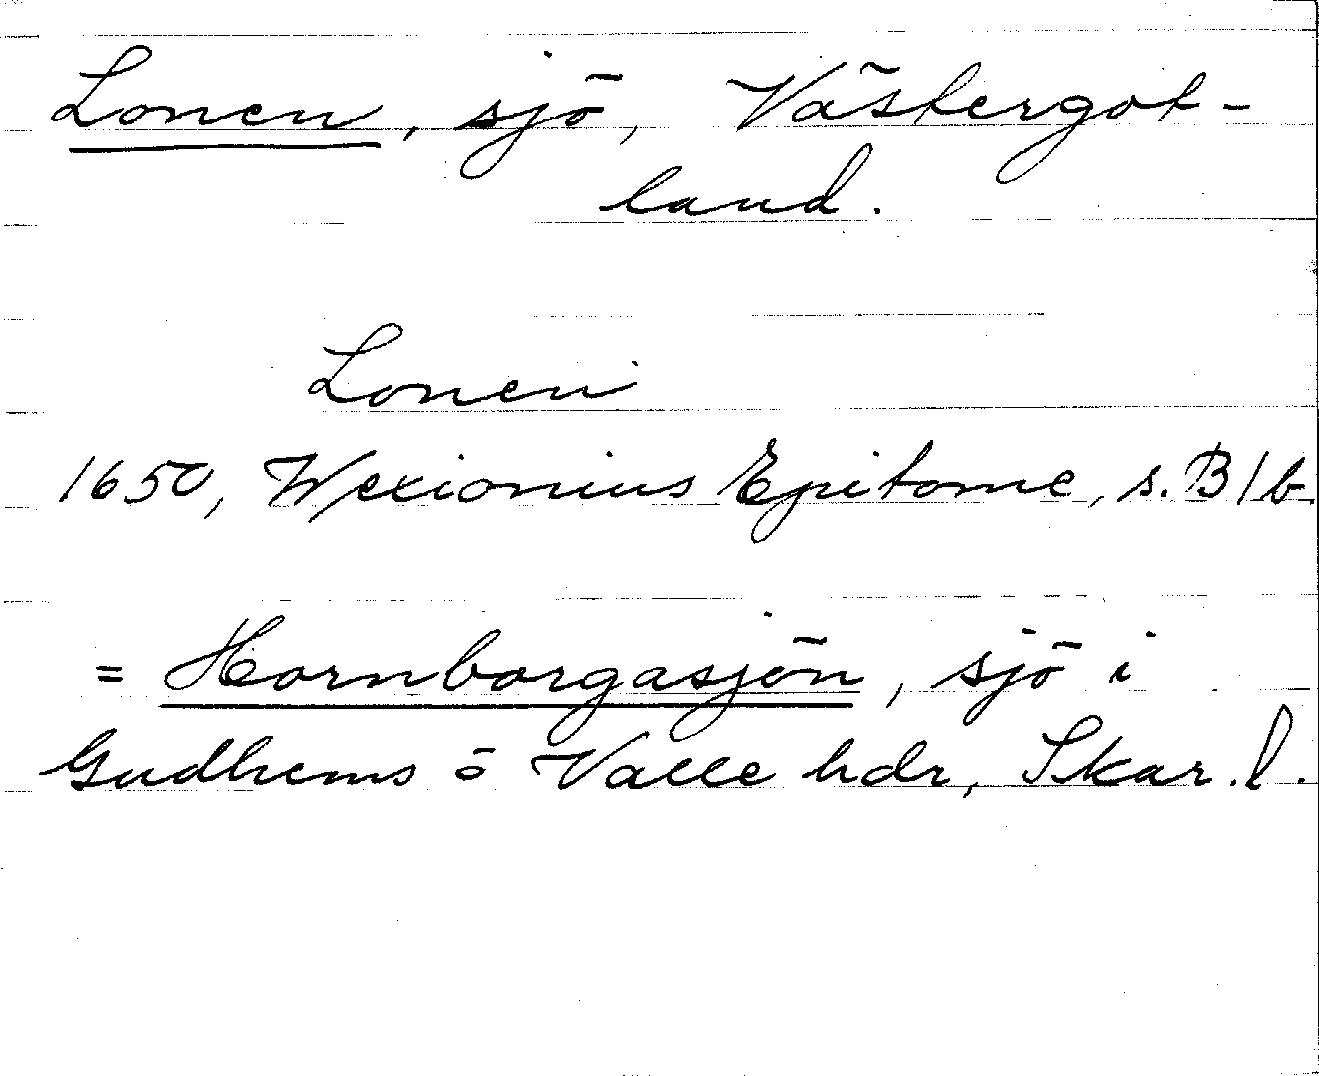 Lonen, sjö, Västergöt-
land.
Lonen
1650, Wexionius Epitome, s. B1b.
= Hornborgasjön, sjö i
Gudhems o Valle hdr, Skar. l.